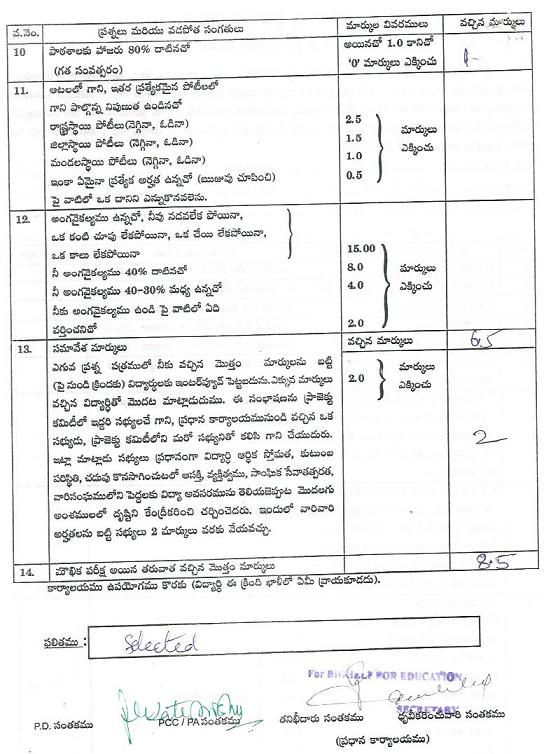 వ.నెం. ప్రశ్నలు మరియు వడపోత సంగతులు మార్కుల వివరములు వచ్చిన మార్కులు
10 పాఠశాలకు హాజరు 80% దాటినచో అయినచో 1.0 కానిచో
(గత సంవత్సరం) '0' మార్కులు ఎక్కించు
11. ఆటలలో గాని, ఇతర ప్రత్యేకమైన పోటీలలో
గాని పాల్గొన్న నిపుణుత ఉండినచో
రాష్ట్రస్థాయి పోటీలు(నెగ్గినా, ఓడినా) 2.5 మార్కులు
జిల్లాస్థాయి పోటీలు (నెగ్గినా, ఓడినా) 1.5 ఎక్కించు
మండలస్థాయి పోటీలు (నెగ్గినా, ఓడినా) 1.0
ఇంకా ఏమైనా ప్రత్యేక అర్హత ఉన్నచో (ఋజువు చూపించి) 0.5
పై వాటిలో ఒక దానిని ఎన్నుకొనవలెను.
12. అంగవైకల్యము ఉన్నచో, నీవు నడవలేక పోయినా,
ఒక కంటి చూపు లేకపోయినా, ఒక చేయి లేకపోయినా,
ఒక కాలు లేకపోయినా 15.00
నీ అంగవైకల్యము 40% దాటినచో 8.0 మార్కులు
నీ అంగవైకల్యము 40-30% మధ్య ఉన్నచో 4.0 ఎక్కించు
నీకు అంగవైకల్యము ఉండి పై వాటిలో ఏది
వర్తించనిచో 2.0
13. సమావేశ మార్కులు వచ్చిన మార్కులు 6.5
ఎగువ ప్రశ్న పత్రములో నీకు వచ్చిన మొత్తం మార్కులను బట్టి
(పై నుండి క్రిందకు) విద్యార్థులకు ఇంటర్‌వ్యూవ్ పెట్టబడును.ఎక్కువ మార్కులు 2.0 మార్కులు
వచ్చిన విద్యార్థితో మొదట మాట్లాడుదుము. ఈ సంభాషణను ప్రాజెక్టు ఎక్కించు
కమిటీలో ఇద్దరి సభ్యులచే గాని, ప్రధాన కార్యాలయమునుండి వచ్చిన ఒక
సభ్యుడు, ప్రాజెక్టు కమిటీలోని మరో సభ్యునితో కలిసి గాని చేయుదురు. 2
ఇట్లా మాట్లాడు సభ్యులు ప్రధానంగా విద్యార్థి ఆర్థిక స్తోమత, కుటుంబ
పరిస్థితి, చదువు కొనసాగించుటలో ఆసక్తి, వ్యక్తిత్వము, సాంఘిక సేవాతత్పరత,
వారిసంఘములోని పెద్దలకు విద్యా అవసరమును తెలియజెప్పుట మొదలగు
అంశములలో దృష్టిని కేంద్రీకరించి చర్చించెదరు. ఇందులో వారివారి
అర్హతలను బట్టి సభ్యులు 2 మార్కులు వరకు వేయవచ్చు.
14. మౌఖిక పరీక్ష అయిన తరువాత వచ్చిన మొత్తం మార్కులు 8.5
కార్యాలయము ఉపయోగము కొరకు (విద్యార్థి ఈ క్రింది ఖాళీలో ఏమీ వ్రాయకూడదు).
ఫలితము : Selected
FOR EDUCATION
SECRETARY
P.D. సంతకము PCC / PA సంతకము తనిఖీదారు సంతకము ధృవీకరించువారి సంతకము
(ప్రధాన కార్యాలయము)